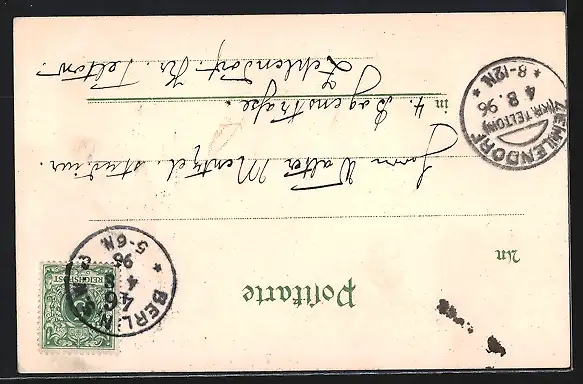 Postkarte
An
BERLIN
4 8 96
5-6N.
REICHSPOST
Herrn Walter Mentzel. stud. iur.
in 4. Bogenstraße.
Zehlendorf. Kr. Teltow.
ZEHLENDORF
(KR. TELTOW)
4 8. 96
* 8-12N. *